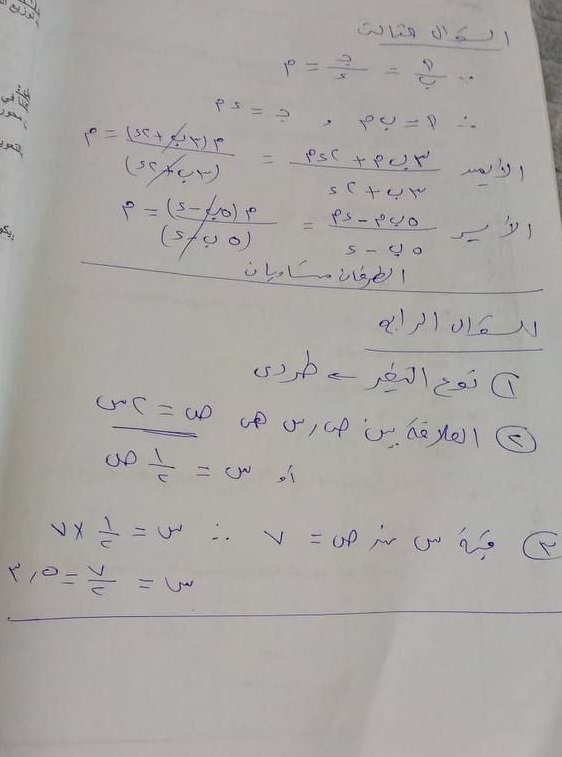 السؤال الثالث
∴ أ/ب = ج/د = م
∴ أ = ب م ، ج = د م
الأيمن ٣ب م + ٢د م / ٣ب + ٢د = م(٣ب + ٢د) / (٣ب + ٢د) = م
الأيسر ٥ب م − د م / ٥ب − د = م(٥ب − د) / (٥ب − د) = م
الطرفان متساويان
السؤال الرابع
① نوع التغير ← طردى
② العلاقة بين ص , س هى ص = ٢س
أو س = ١/٢ ص
③ قيمة س عند ص = ٧ ∴ س = ١/٢ × ٧
س = ٧/٢ = ٣,٥